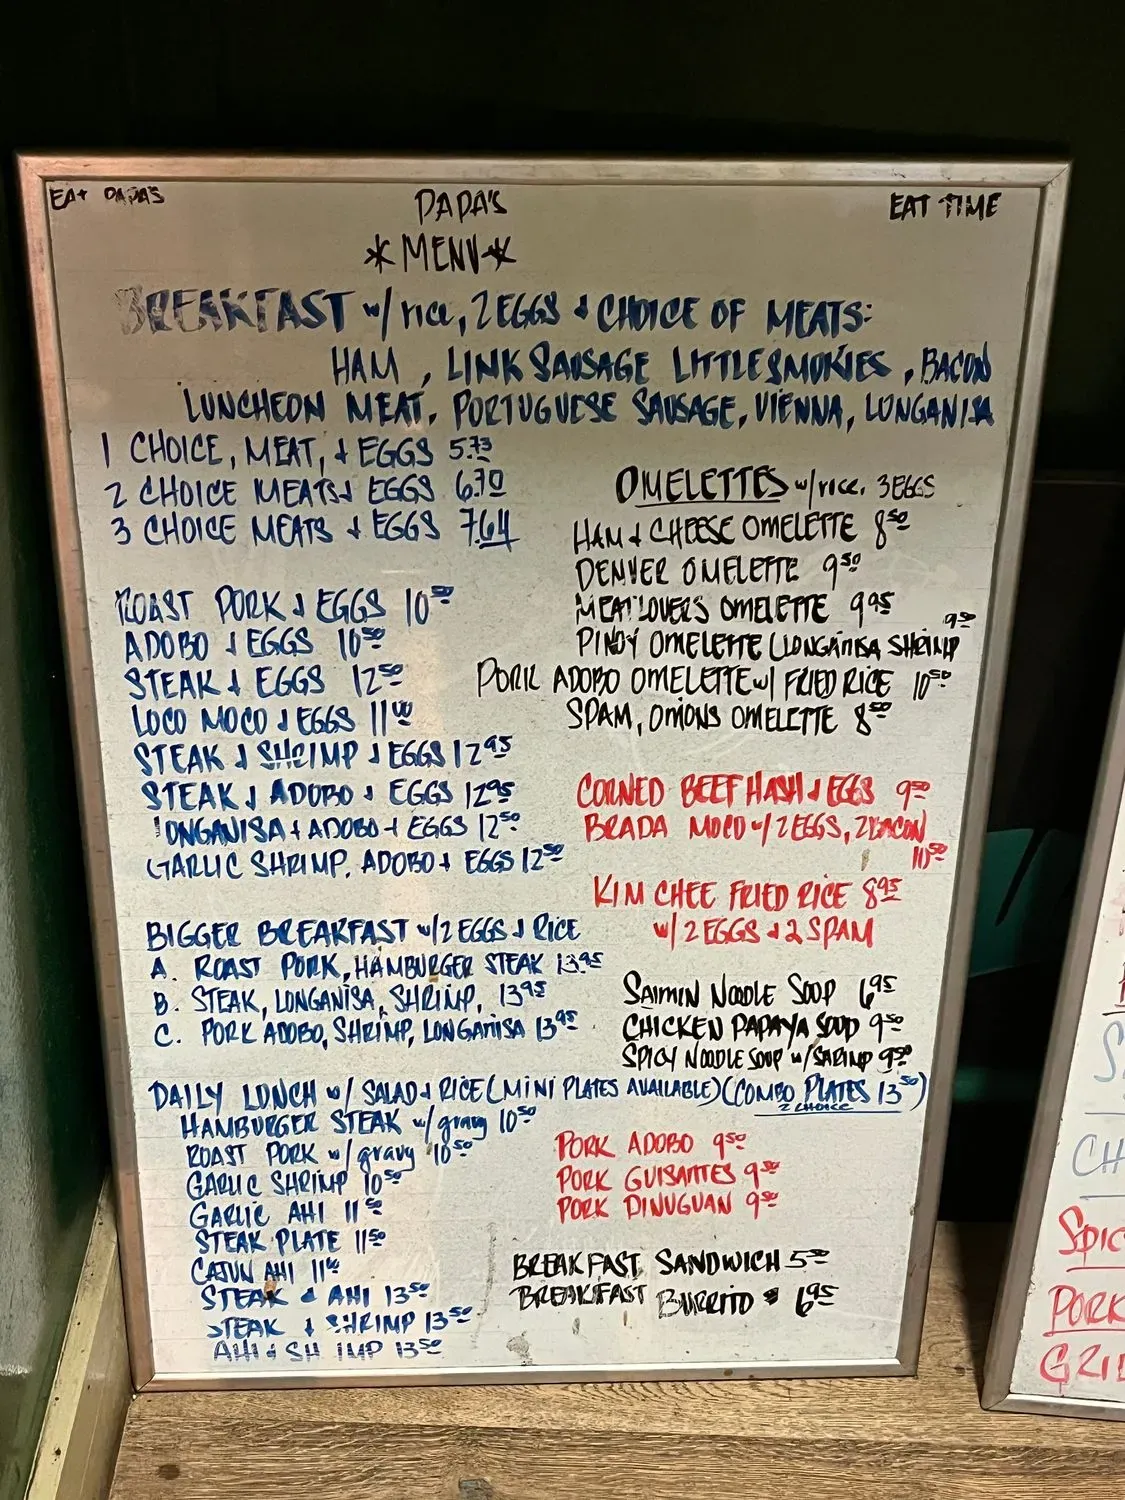 EAT PAPA'S
PAPA'S
EAT TIME
*MENU*
BREAKFAST w/ rice, 2 EGGS & CHOICE OF MEATS:
HAM, LINK SAUSAGE LITTLE SMOKIES, BACON
LUNCHEON MEAT, PORTUGUESE SAUSAGE, VIENNA, LONGANISA
1 CHOICE, MEAT, & EGGS 5.73
2 CHOICE MEATS & EGGS 6.70
3 CHOICE MEATS & EGGS 7.64
ROAST PORK & EGGS 10 50
ADOBO & EGGS 10 50
STEAK & EGGS 12 50
LOCO MOCO & EGGS 11 00
STEAK & SHRIMP & EGGS 12 95
STEAK & ADOBO & EGGS 12 95
LONGANISA & ADOBO & EGGS 12 50
GARLIC SHRIMP, ADOBO & EGGS 12 50
BIGGER BREAKFAST w/ 2 EGGS & RICE
A. ROAST PORK, HAMBURGER STEAK 13 95
B. STEAK, LONGANISA, SHRIMP, 13 95
C. PORK ADOBO, SHRIMP, LONGANISA 13 95
OMELETTES w/ rice, 3 EGGS
HAM & CHEESE OMELETTE 8 50
DENVER OMELETTE 9 50
MEATLOVERS OMELETTE 9 95
PINOY OMELETTE (LONGANISA SHRIMP 9 50
PORK ADOBO OMELETTE w/ FRIED RICE 10 50
SPAM, ONIONS OMELETTE 8 50
CORNED BEEF HASH & EGGS 9 50
BRADA MOCO w/ 2 EGGS, 2 BACON
10 50
KIM CHEE FRIED RICE 8 95
w/ 2 EGGS & 2 SPAM
SAIMIN NOODLE SOUP 6 95
CHICKEN PAPAYA SOUP 9 50
SPICY NOODLE SOUP w/ SHRIMP 9 50
DAILY LUNCH w/ SALAD & RICE (MINI PLATES AVAILABLE) (COMBO PLATES 13 50)
2 CHOICE
HAMBURGER STEAK w/ gravy 10 50
ROAST PORK w/ gravy 10 50
GARLIC SHRIMP 10 50
GARLIC AHI 11 50
STEAK PLATE 11 50
CAJUN AHI 11
STEAK & AHI 13 50
STEAK & SHRIMP 13 50
AHI & SHRIMP 13 50
PORK ADOBO 9 50
PORK GUISANTES 9 50
PORK DINUGUAN 9 50
BREAKFAST SANDWICH 5 50
BREAKFAST BURRITO 6 95
SPIC
PORK
GRI